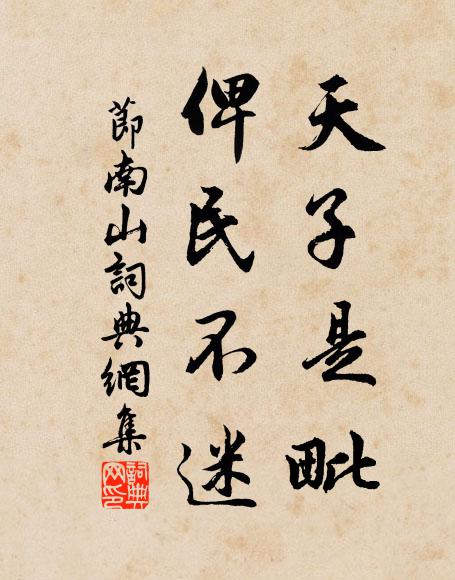 天子是毗
俾民不迷
節南山詞典網集
詞典網印